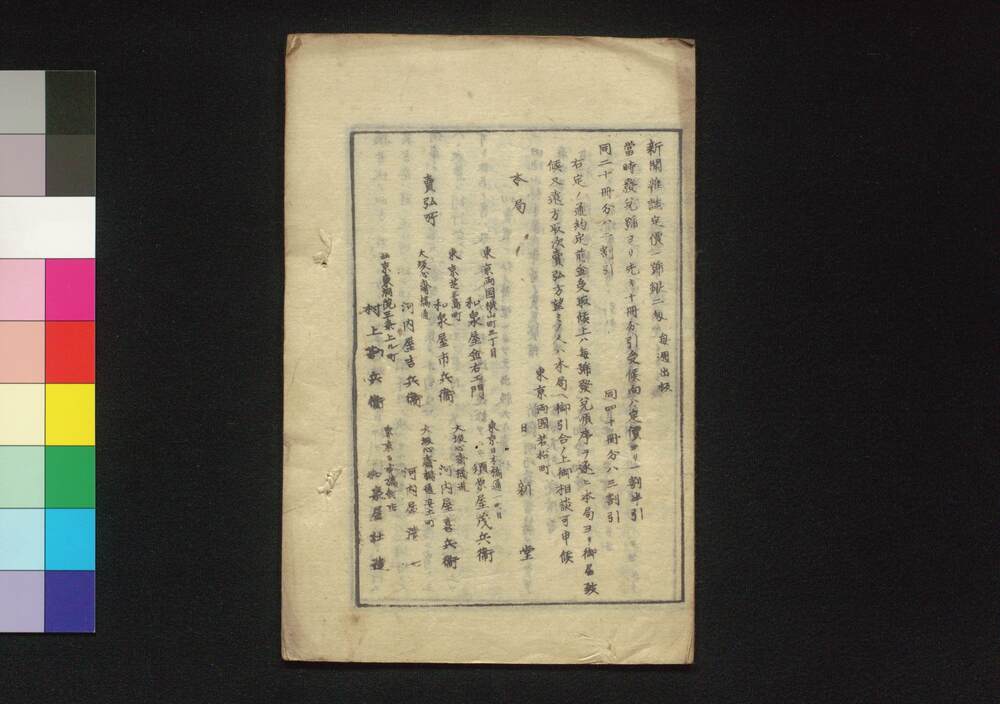 新聞雜誌定價一號銀二匁 每週出板
當時發兌號ヨリ先キ十冊分引受候向ハ定價ヨリ一割半引
同二十冊分ハ二割引 同四十冊分ハ三割引
右定ノ通約定前金受取候上ハ每號發兌順序ヲ逐ヒ本局ヨリ御届致
候又遠方取次賣弘方望ミノ人ハ本局ヘ御引合ノ上御相談可申候
東京両國若松町
本局 日新堂
東京両國橫山町三丁目
和泉屋金右エ門
東京日本橋通一丁目
須原屋茂兵衞
賣弘所
東京芝三島町
和泉屋市兵衞
大坂心齋橋通
河内屋喜兵衞
大坂心齋橋通
河内屋吉兵衞
大坂心齋橋通安土町
河内屋
西京東洞院三条上ル町
村上勘兵衞
東京日本橋
和泉屋壯造